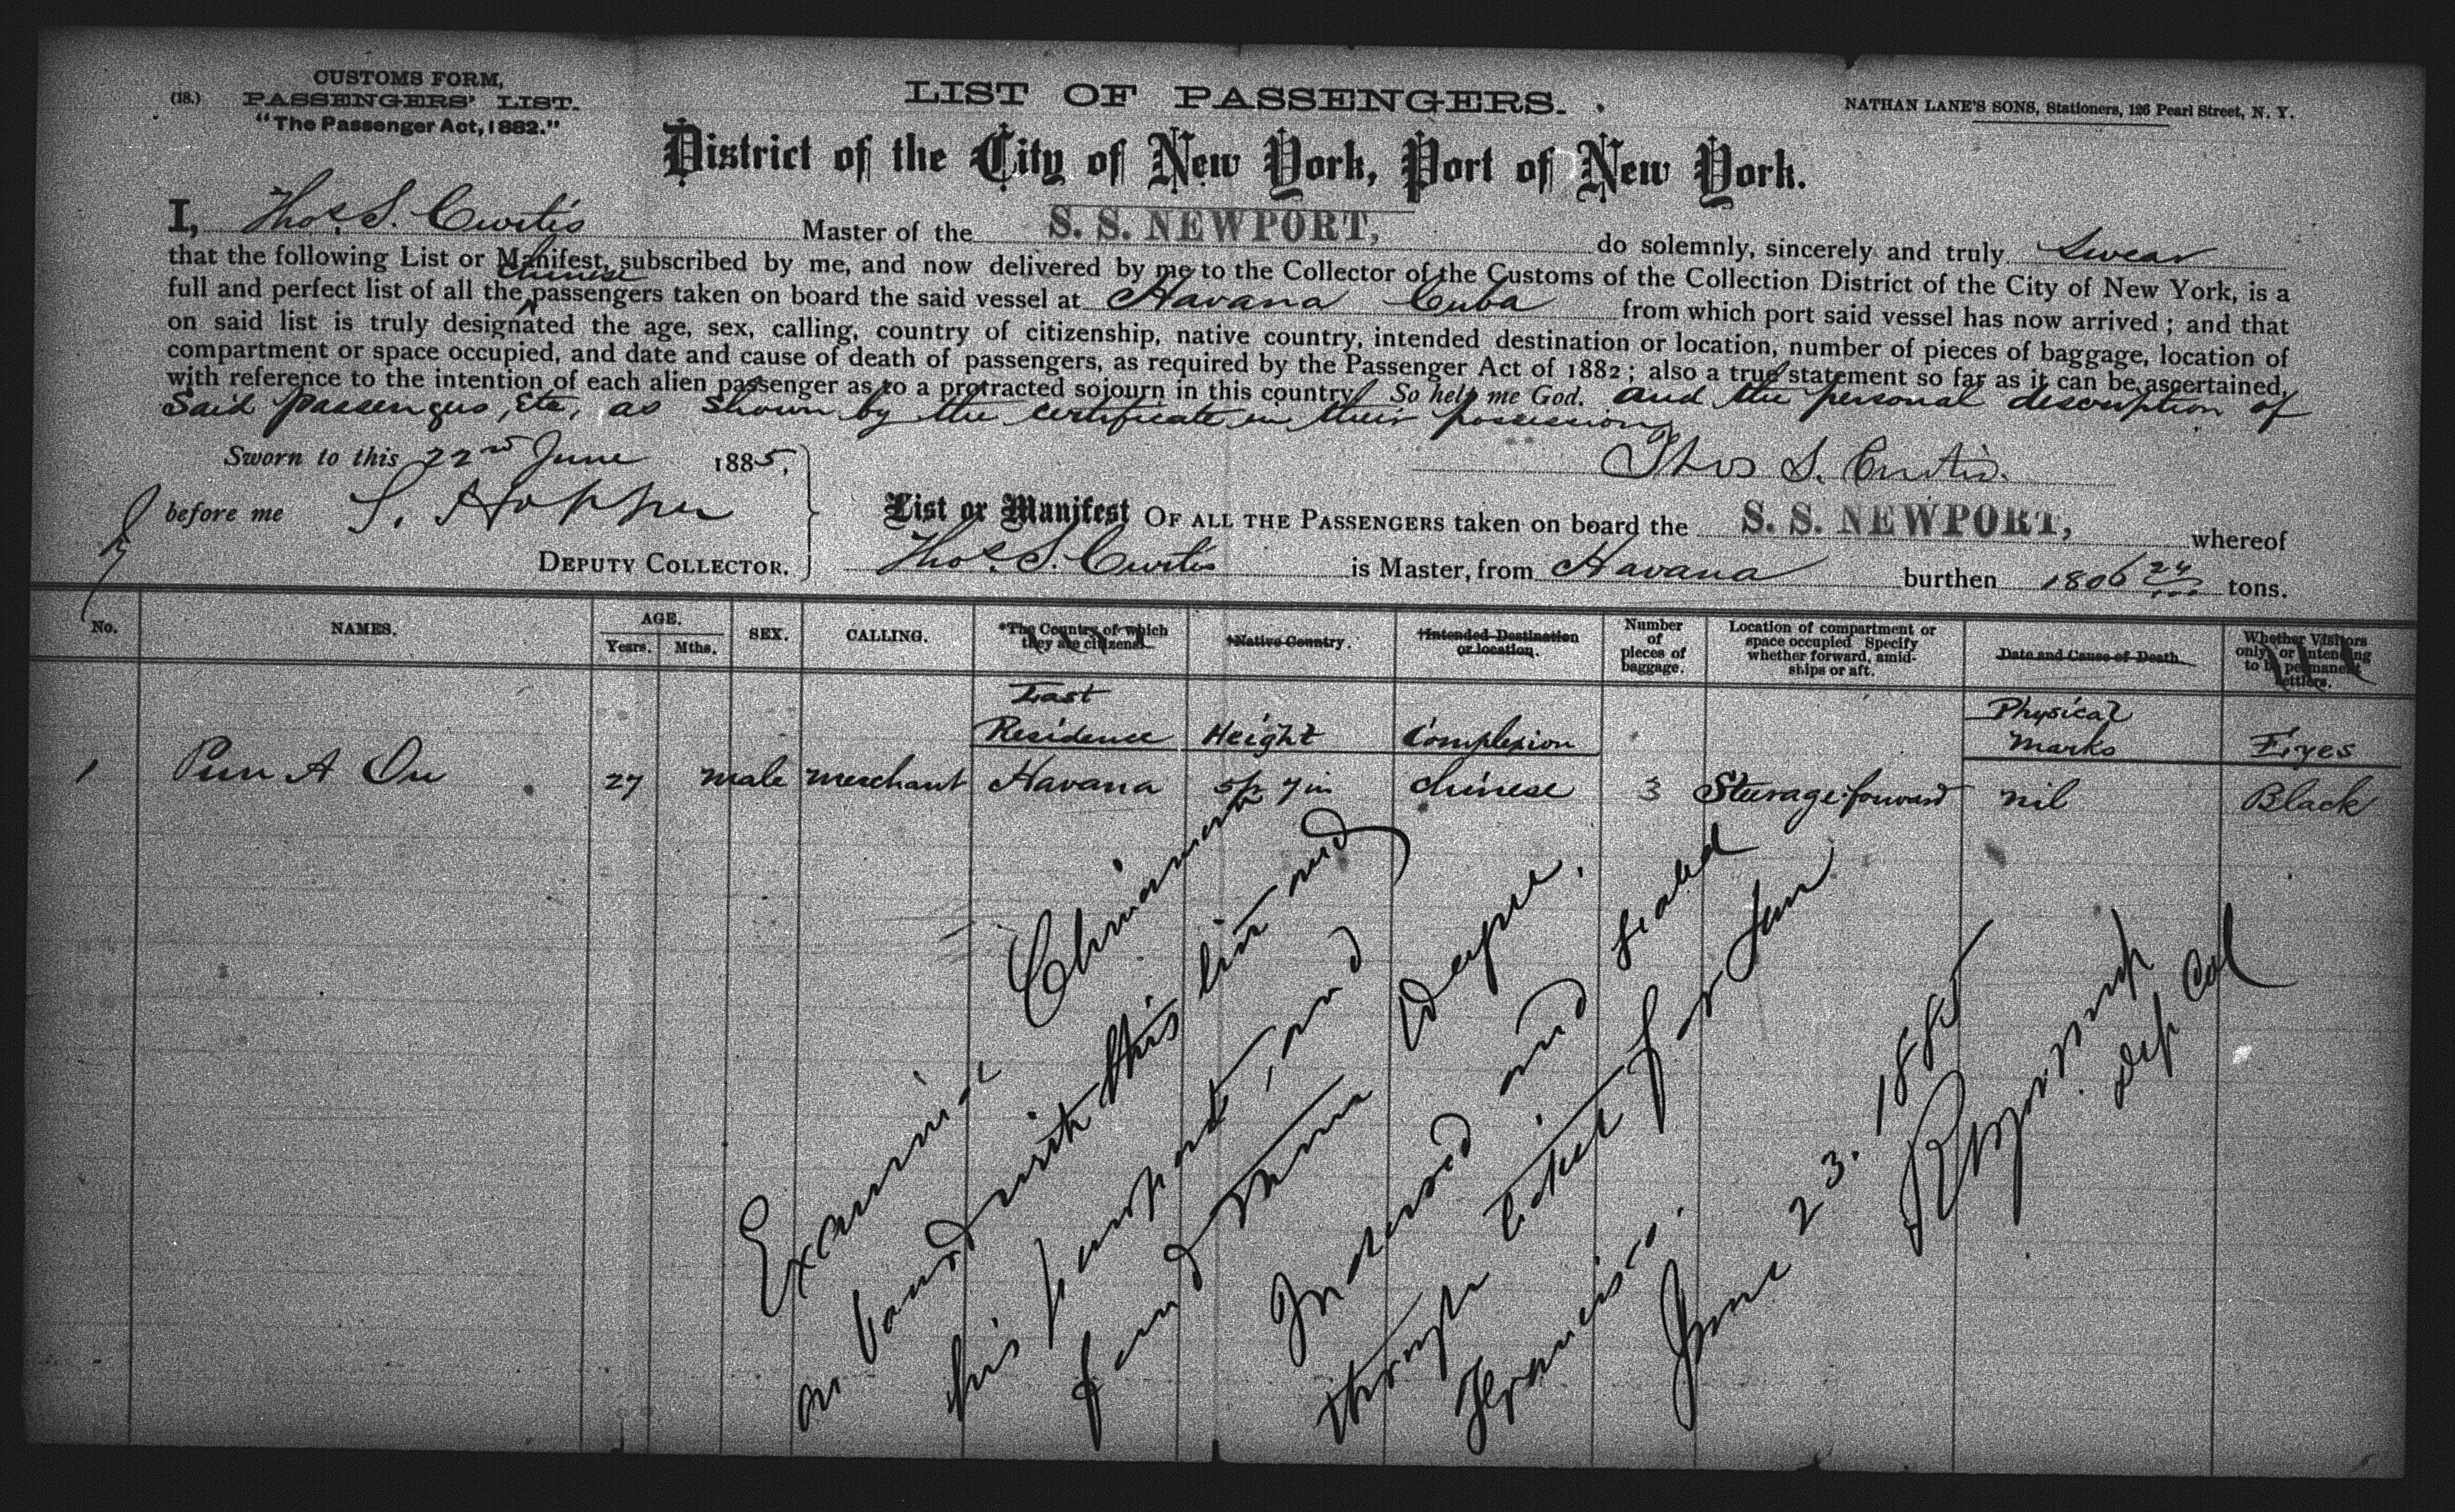 (18.)
CUSTOMS FORM,
PASSENGERS' LIST.
"The Passenger Act, 1882."
LIST OF PASSENGERS.
NATHAN LANE'S SONS, Stationers, 126 Pearl Street, N. Y.
District of the City of New York, Port of New York.
I, Thos. S. Curtis Master of the S. S. NEWPORT, do solemnly, sincerely and truly Swear
that the following List or Manifest, subscribed by me, and now delivered by me to the Collector of the Customs of the Collection District of the City of New York, is a
full and perfect list of all the Chinese passengers taken on board the said vessel at Havana Cuba from which port said vessel has now arrived; and that
on said list is truly designated the age, sex, calling, country of citizenship, native country, intended destination or location, number of pieces of baggage, location of
compartment or space occupied, and date and cause of death of passengers, as required by the Passenger Act of 1882; also a true statement so far as it can be ascertained,
with reference to the intention of each alien passenger as to a protracted sojourn in this country. So help me God. and the personal description of
Said passengers, Etc, as shown by the certificate in their possession
Sworn to this 22nd June 1885,
Thos S. Curtis.
before me S. Hopper
DEPUTY COLLECTOR.
List or Manifest OF ALL THE PASSENGERS taken on board the S. S. NEWPORT, whereof
Thos. S. Curtis is Master, from Havana burthen 1806 24 tons.
No. NAMES. AGE. Years. Mths. SEX. CALLING. *The Country of which they are citizens. †Native Country. †Intended Destination or location. Number of pieces of baggage. Location of compartment or space occupied Specify whether forward, amidships or aft. Date and Cause of Death. Whether Visitors only, or intending to be permanent settlers.
Last Residence Height Complexion Physical Marks Eyes
1 Pun A On 27 male merchant Havana 5ft 7in Chinese 3 Steerage forward nil Black
Examined Chinaman
on board with this list and
his passport, and
found
and sealed
through ticket for San
Francisco.
June 23. 1885
Dep Col